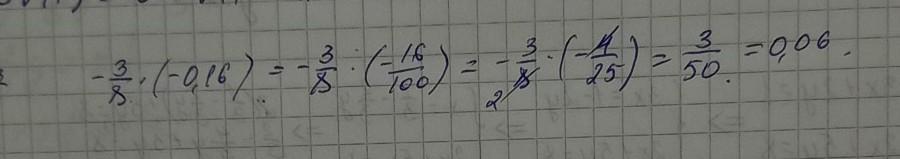 -3/8 · (-0,16) = -3/8 · (-16/100) = -3/8 · (-4/25) = 3/50 = 0,06.